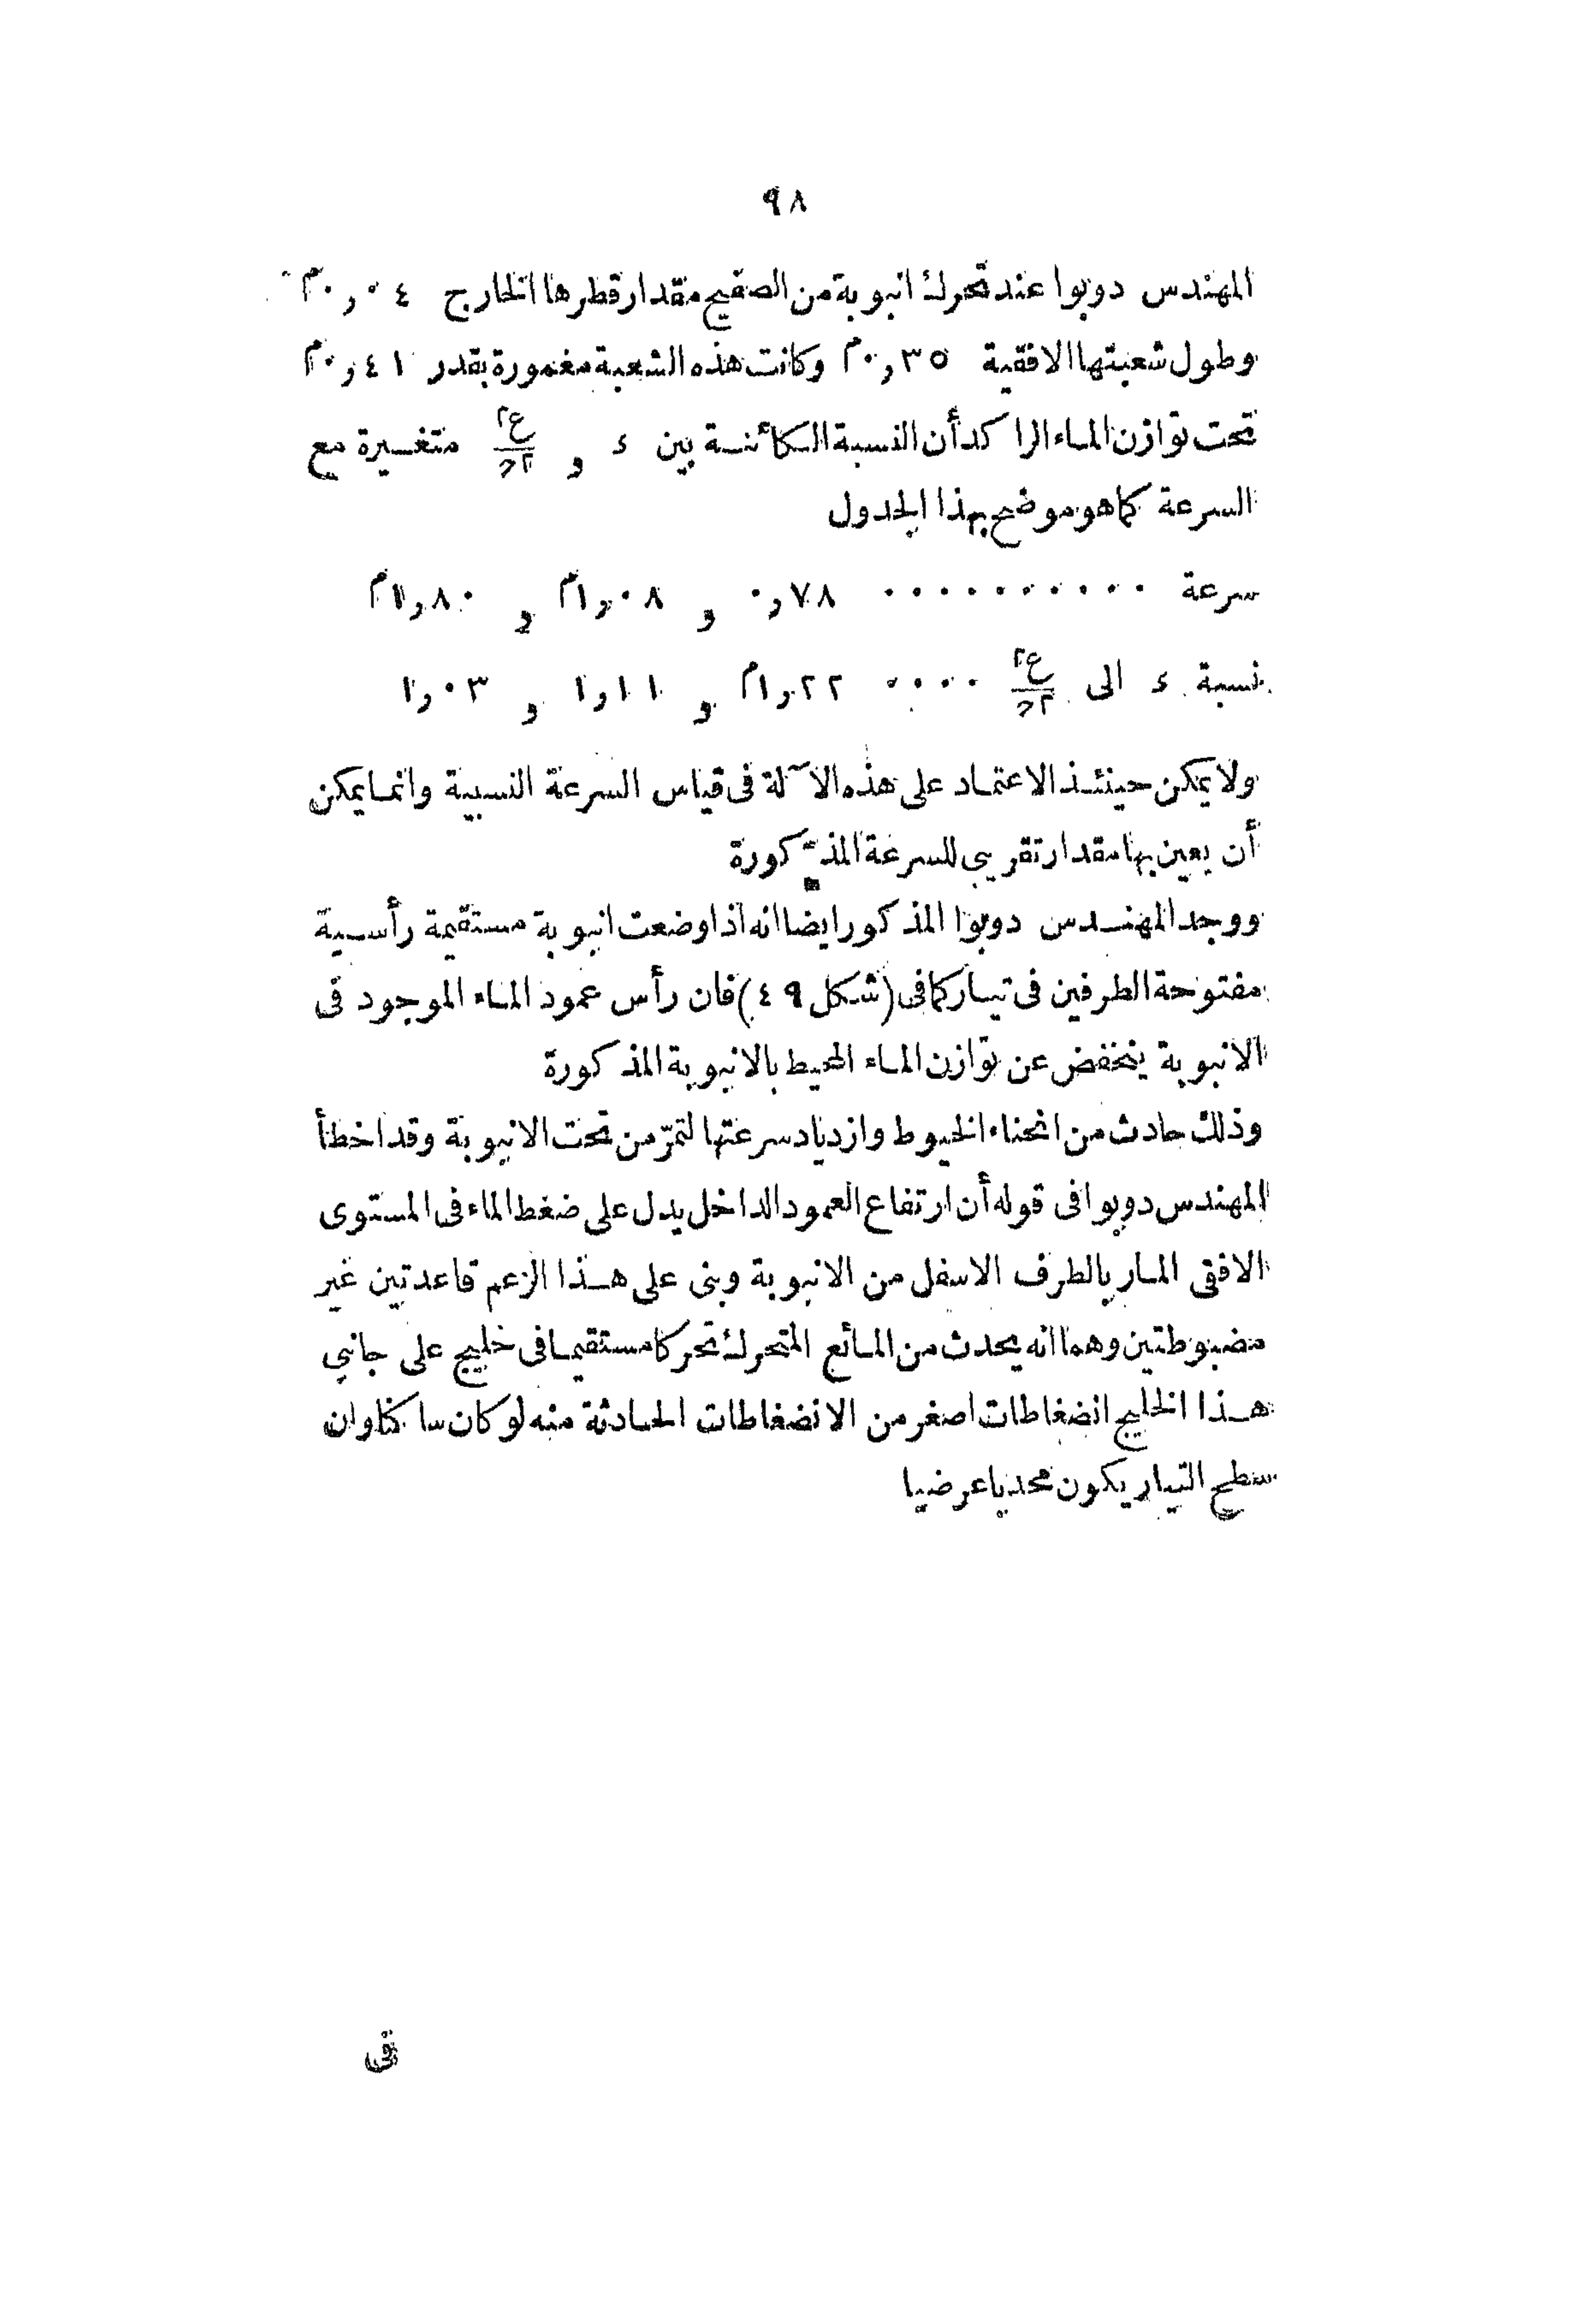 ٩٨
المهندس دوبوا عند تحرك انبوبة من الصفيح مقدار قطرها الخارج ٠٫٠٤م
وطول شعبتها الافقية ٠٫٣٥م وكانت هذه الشعبة مغمورة بقدر ٠٫٤١م
تحت توازن الماء الراكد أن النسبة الكائنة بين ء و ع٢/٢ح متغيرة مع
السرعة كما هو موضح بهذا الجدول
سرعة .......... ٠٫٧٨ و ١٫٠٨م و ١٫٨٠م
نسبة ء الى ع٢/٢ح .... ١٫٢٢م و ١٫١١ و ١٫٠٣
ولا يمكن حينئذ الاعتماد على هذه الآلة فى قياس السرعة النسبية وانما يمكن
أن يعين بها مقدار تقريبى للسرعة المذكورة
ووجد المهندس دوبوا المذكور ايضا انه اذا وضعت انبوبة مستقيمة رأسية
مفتوحة الطرفين فى تيار كما فى (شكل ٤٩) فان رأس عمود الماء الموجود فى
الانبوبة ينخفض عن توازن الماء المحيط بالانبوبة المذكورة
وذلك حادث من انحناء الخيوط وازدياد سرعتها لتمرّ من تحت الانبوبة وقد اخطأ
المهندس دوبوا فى قوله أن ارتفاع العمود الداخل يدل على ضغط الماء فى المستوى
الافقى المار بالطرف الاسفل من الانبوبة وبنى على هذا الزعم قاعدتين غير
مضبوطتين وهما انه يحدث من المائع المتحرك تحركا مستقيما فى خليج على جانبى
هذا الخليج انضغاطات اصغر من الانضغاطات الحادثة منه لو كان ساكنا وان
سطح التيار يكون محدبا عرضيا
فى